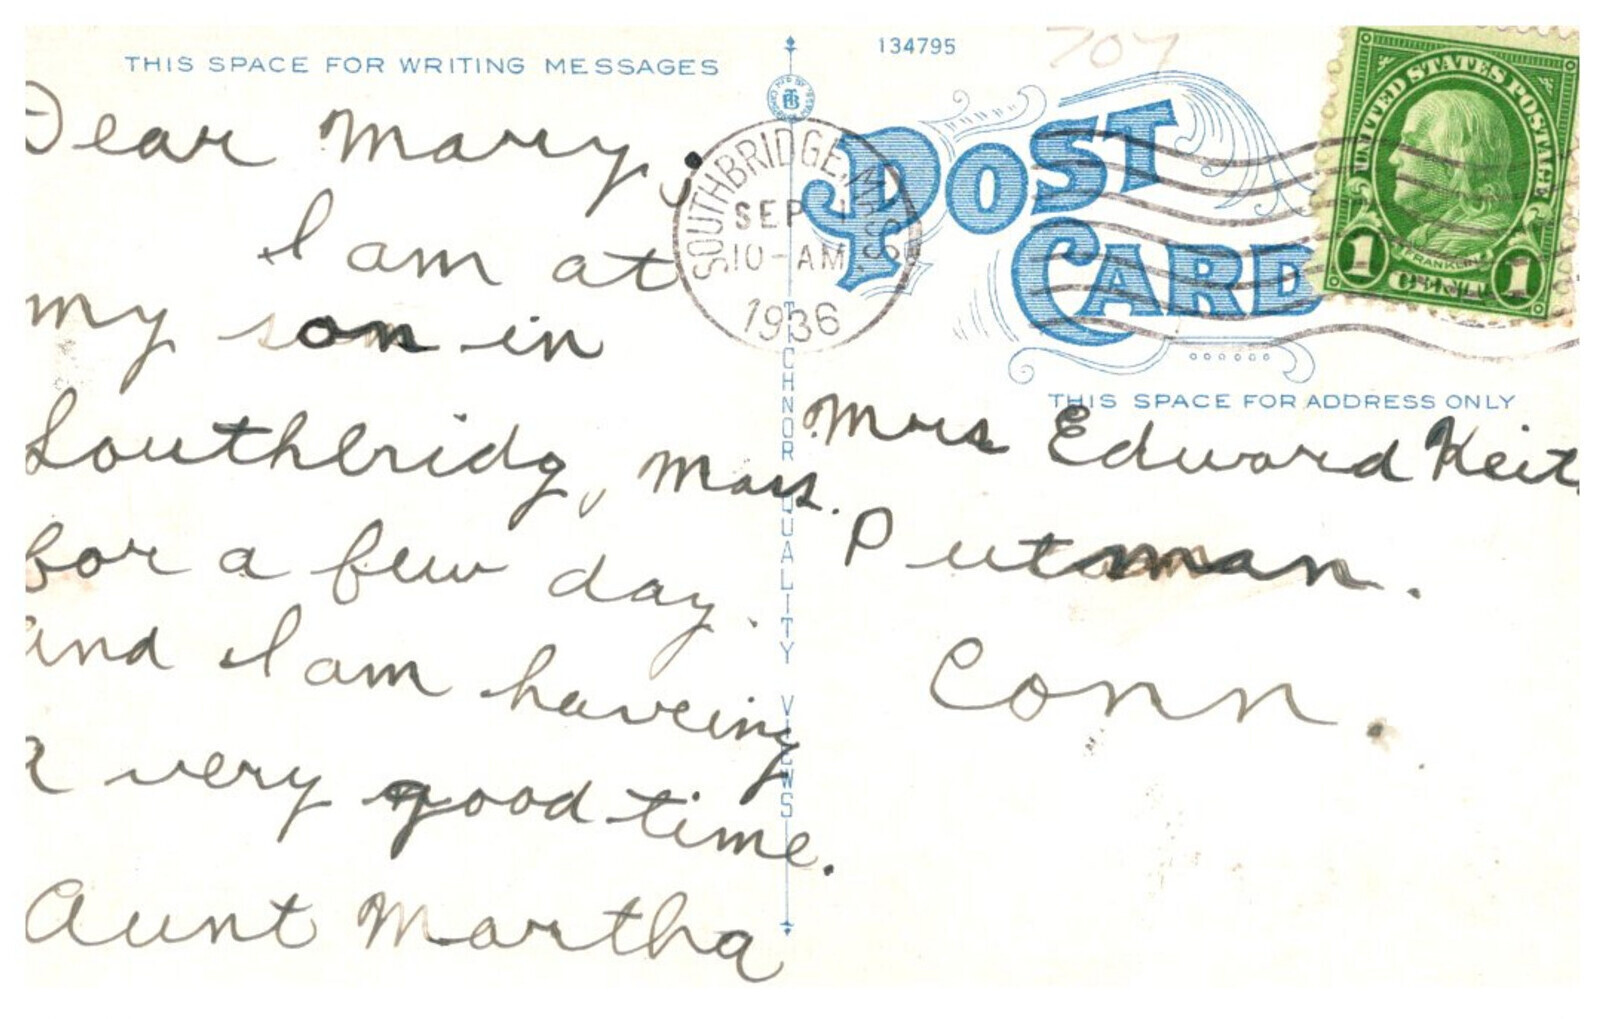 THIS SPACE FOR WRITING MESSAGES
Dear Mary,
I am at
my son in
Southbridg, Mass.
for a few day.
and I am haveing
a very good time.
Aunt Martha
134795
707
POST
CARD
SOUTHBRIDGE, MASS.
SEP 1
10-AM
1936
UNITED STATES POSTAGE
FRANKLIN
1 CENT 1
TICHNOR QUALITY VIEWS
THIS SPACE FOR ADDRESS ONLY
Mrs Edward Keit
Putman.
Conn.